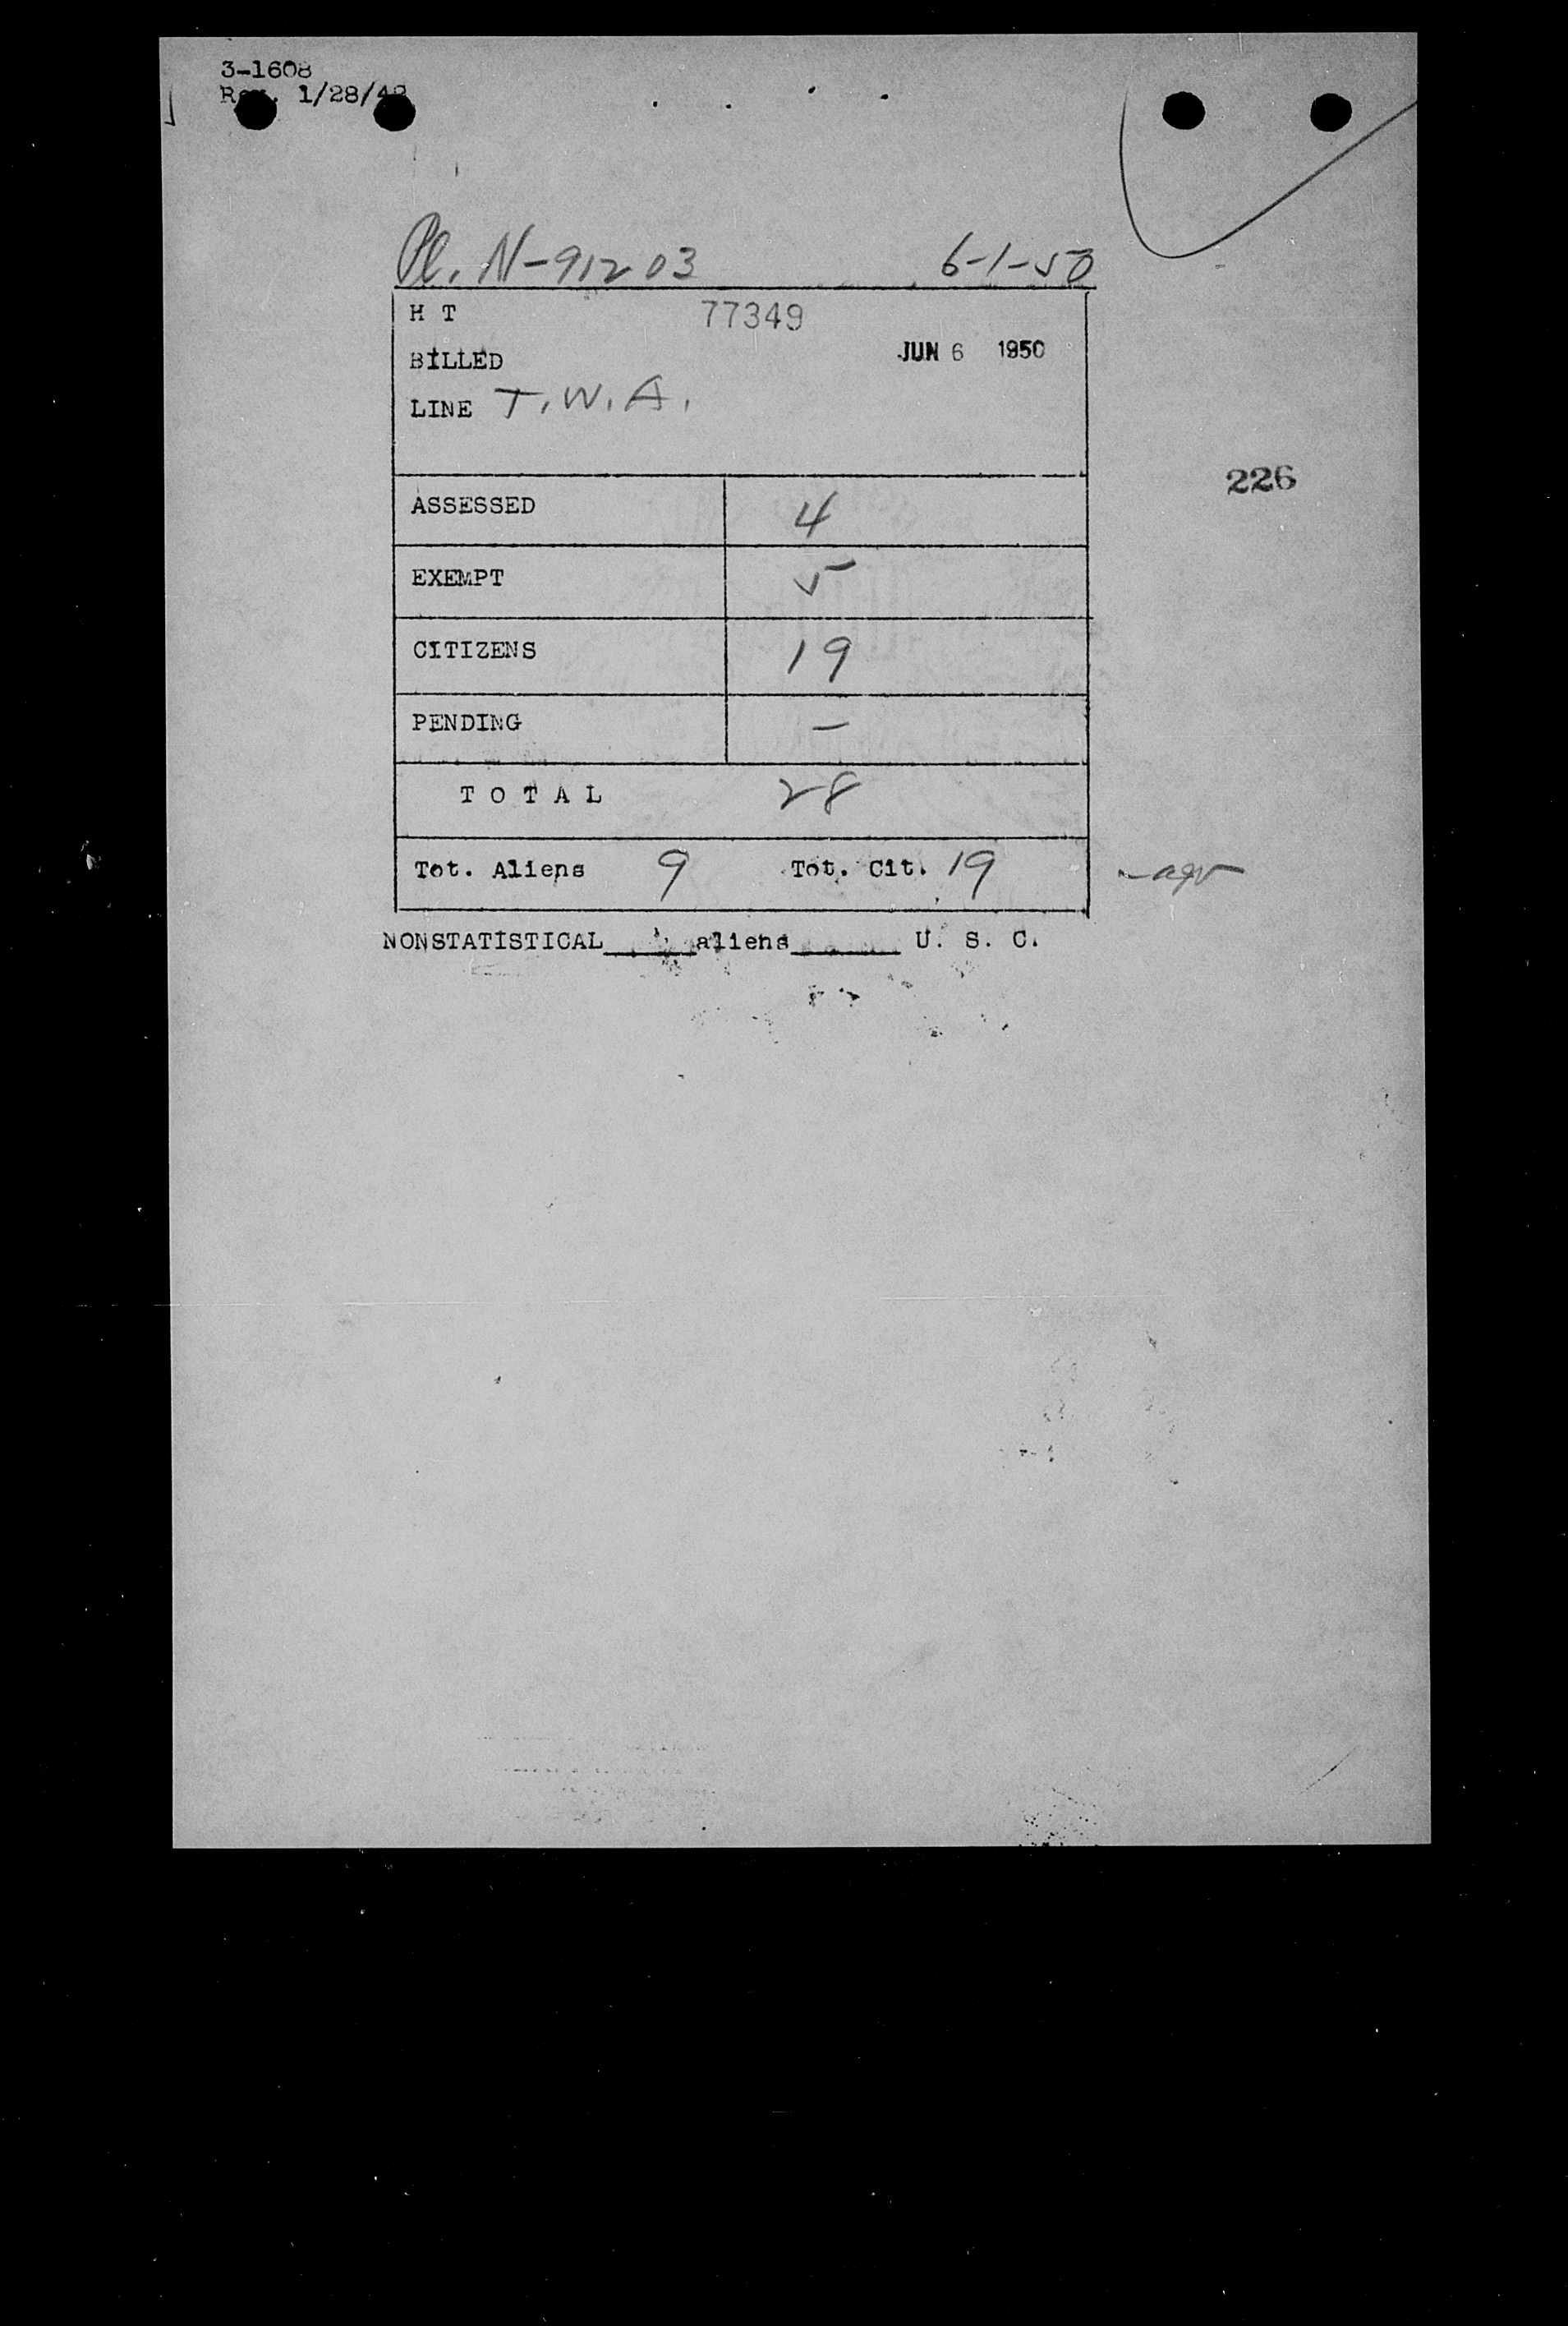 3-1608
1/28/48
Pl. N-91203 6-1-50
H T 77349
BILLED JUN 6 1950
LINE T.W.A.
226
ASSESSED 4
EXEMPT 5
CITIZENS 19
PENDING –
TOTAL 28
Tot. Aliens 9 Tot. Cit. 19
NONSTATISTICAL____aliens____ U. S. C.